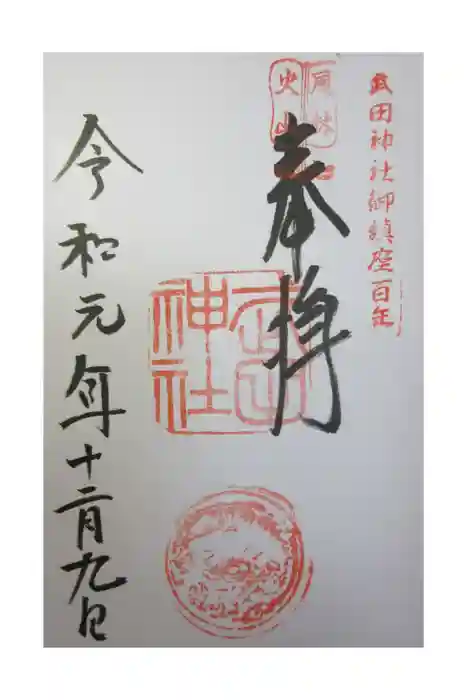 武田神社御鎮座百年
風林
火山
奉拝
武田
神社
令和元年十二月九日